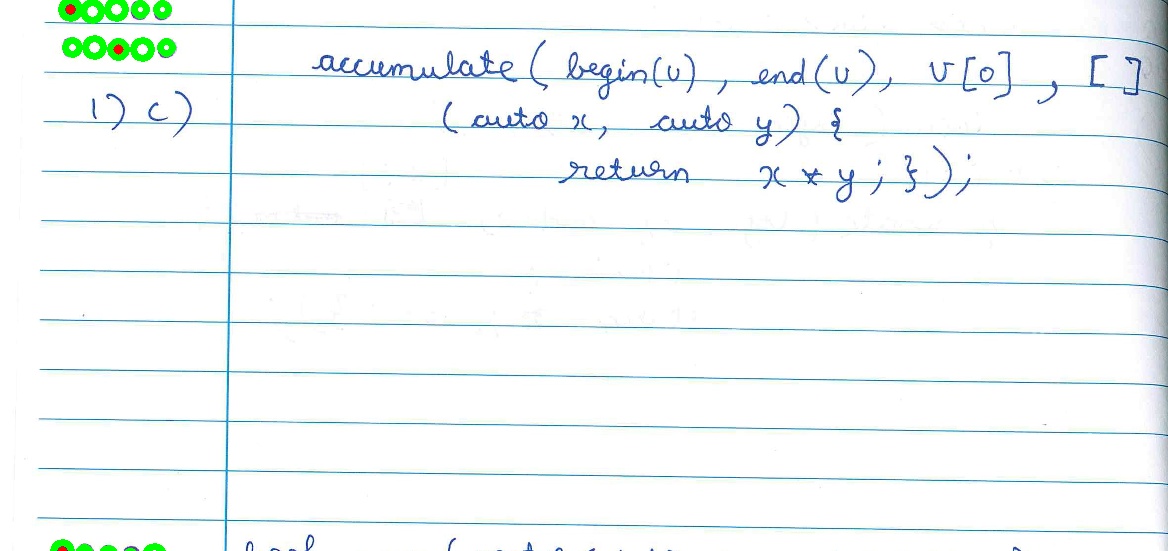 accumulate ( begin(v) , end(v), v[0] , [ ]
1) c) (auto x, auto y) {
return x * y ; });